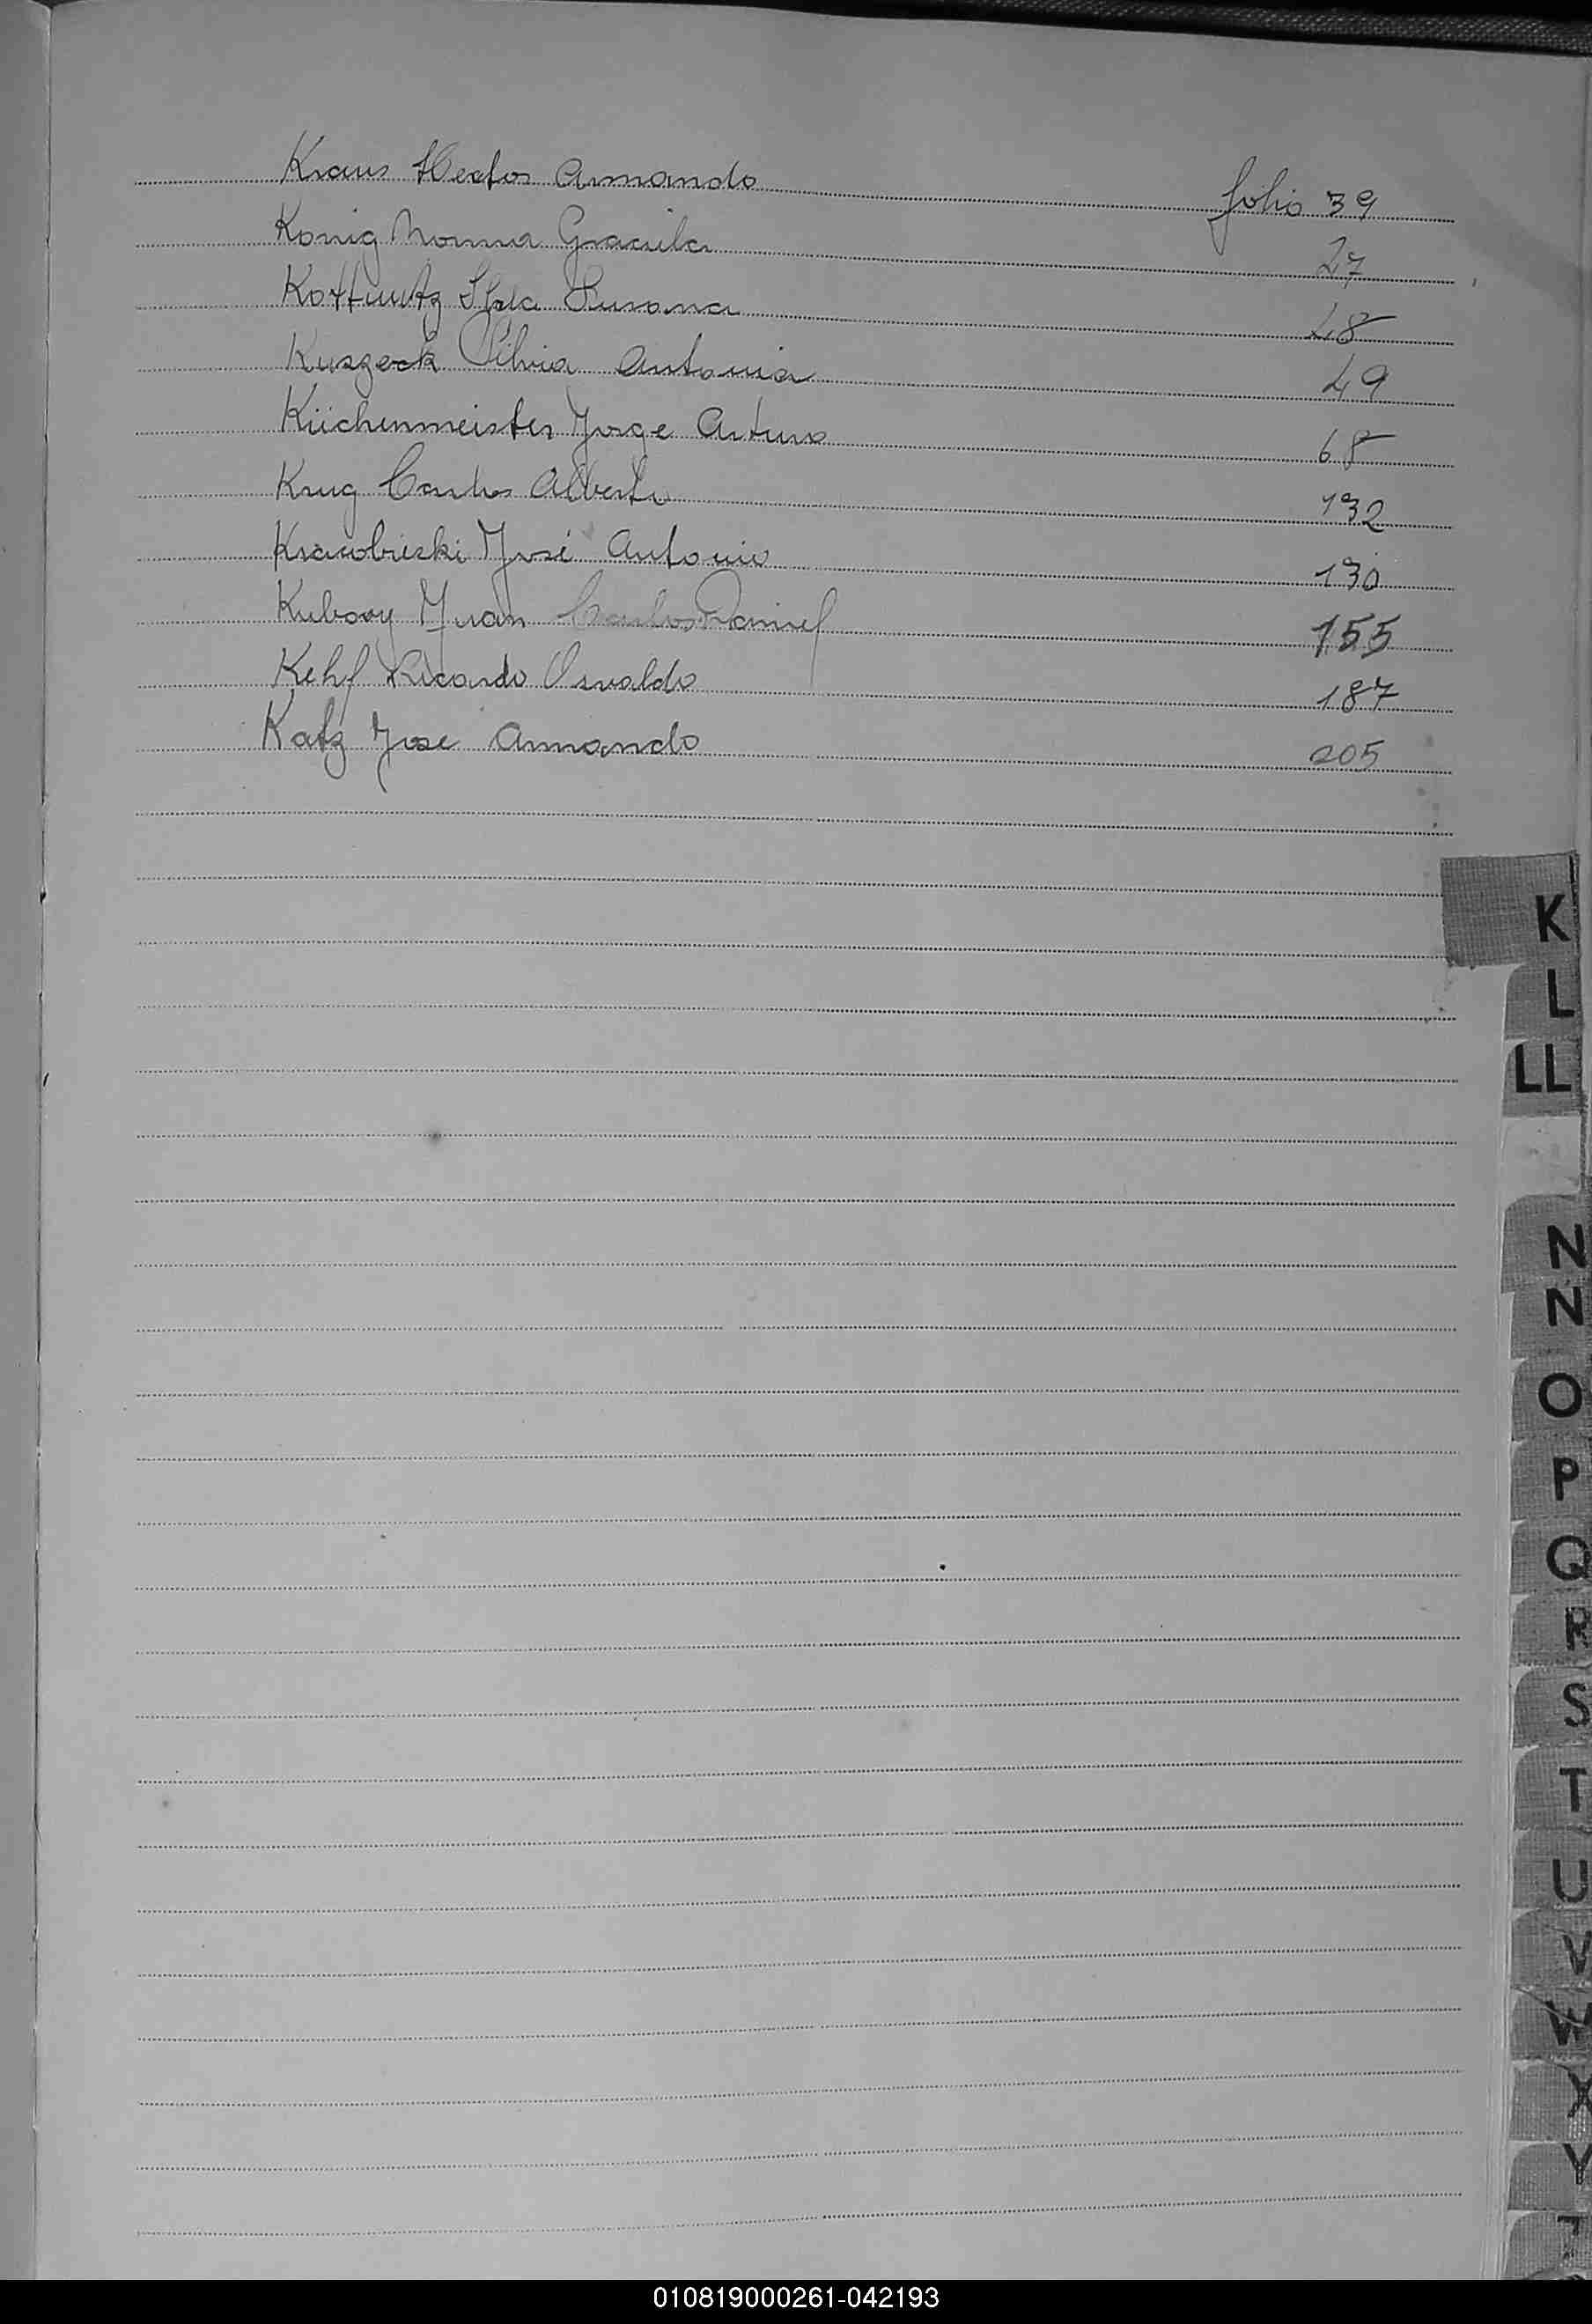 Kraus Hector Armando folio 39
Konig Norma Graciela 27
Susana 28
Kuszeck Silvia Antonia 49
Küchenmeister Jorge Arturo 68
Krug Carlos Alberto 132
José Antonio 130
Kubovy Juan Carlos Daniel 155
Kehl Ricardo Osvaldo 187
Katz Jose Armando 205
K
L
LL
N
N
O
P
Q
R
S
T
U
V
W
X
Y
010819000261-042193